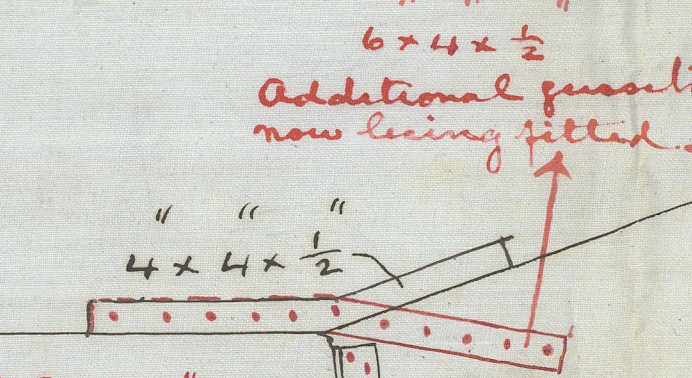 " " "
6 × 4 × 1/2
Additional
now being fitted.
" " "
4 × 4 × 1/2
"